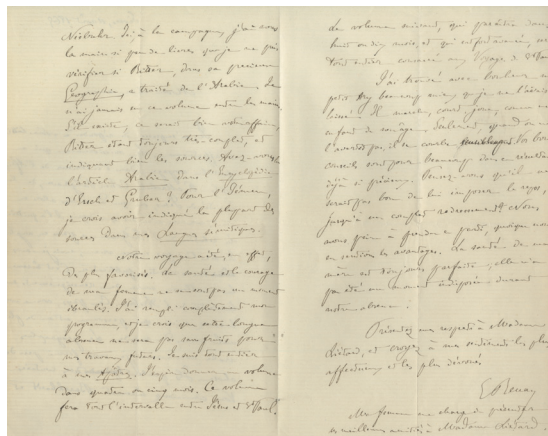 Niebuhr. Ici, à la campagne, j'ai sous
la main si peu de livres que je ne puis
vérifier si Ritter, dans sa première
Géographie, a traité de l'Arabie. Je
n'ai jamais eu ce volume entre les mains.
S'il existe, ce serait bien votre affaire,
Ritter étant toujours très-complet, et
indiquant bien les sources. Avez-vous
l'article Arabie dans l'Encyclopédie
d'Ersch et Gruber ? Pour l'Yémen,
je crois avoir indiqué la plupart des
sources dans mes Langues sémitiques.
Notre voyage a été, en effet,
des plus favorisés. La santé et le courage
de ma femme ne se sont pas un moment
ébranlés. J'ai rempli complètement mon
programme, et je crois que cette longue
absence ne sera pas sans fruits pour
mes travaux futurs. Je suis tout entier
à mes Apôtres. J'espère donner un volume
dans quatre ou cinq mois. Ce volume
fera tout l'intervalle entre Jésus et St Paul.
Le volume suivant, qui paraîtra dans
huit ou dix mois, et qui est fort avancé, est
tout entier consacré aux voyages de St Paul.
J'ai trouvé avec bonheur mon
petit Ary beaucoup mieux que je ne l'avais
laissé. Il marche, court, joue, comme un
enfant de son âge. Seulement, quand on ne
l'avertit pas, il se courbe Vos bons
conseils sont pour beaucoup dans ce résultat
déjà si précieux. Pensez-vous qu'il ne
serait pas bon de lui imposer le repos,
jusqu'à son complet redressement ? Nous
avons peine à prendre ce parti, quoique nous
en sentions les avantages. La santé de ma
mère est toujours parfaite, elle n'a
pas été un moment indisposée durant
notre absence.
Présentez mes respects à Madame
et croyez à mes sentiments les plus
affectueux et les plus dévoués.
E Renan
Ma femme me charge de présenter
ses meilleures amitiés à Madame